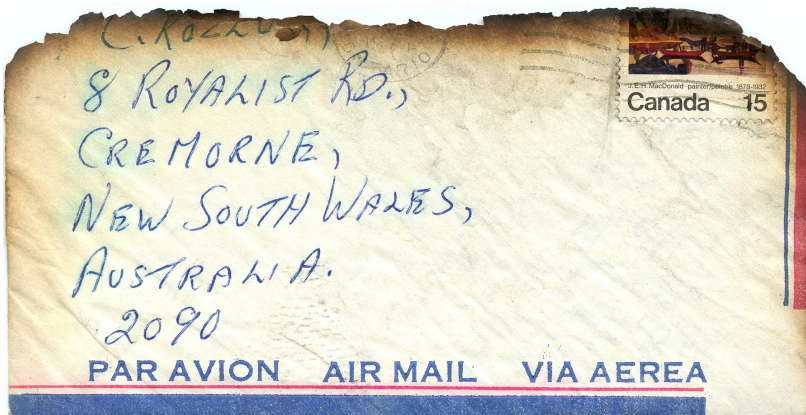 8 ROYALIST RD.,
CREMORNE,
NEW SOUTH WALES,
AUSTRALIA.
2090
J.E.H. MacDonald painter/peintre 1873-1932
Canada 15
PAR AVION AIR MAIL VIA AEREA